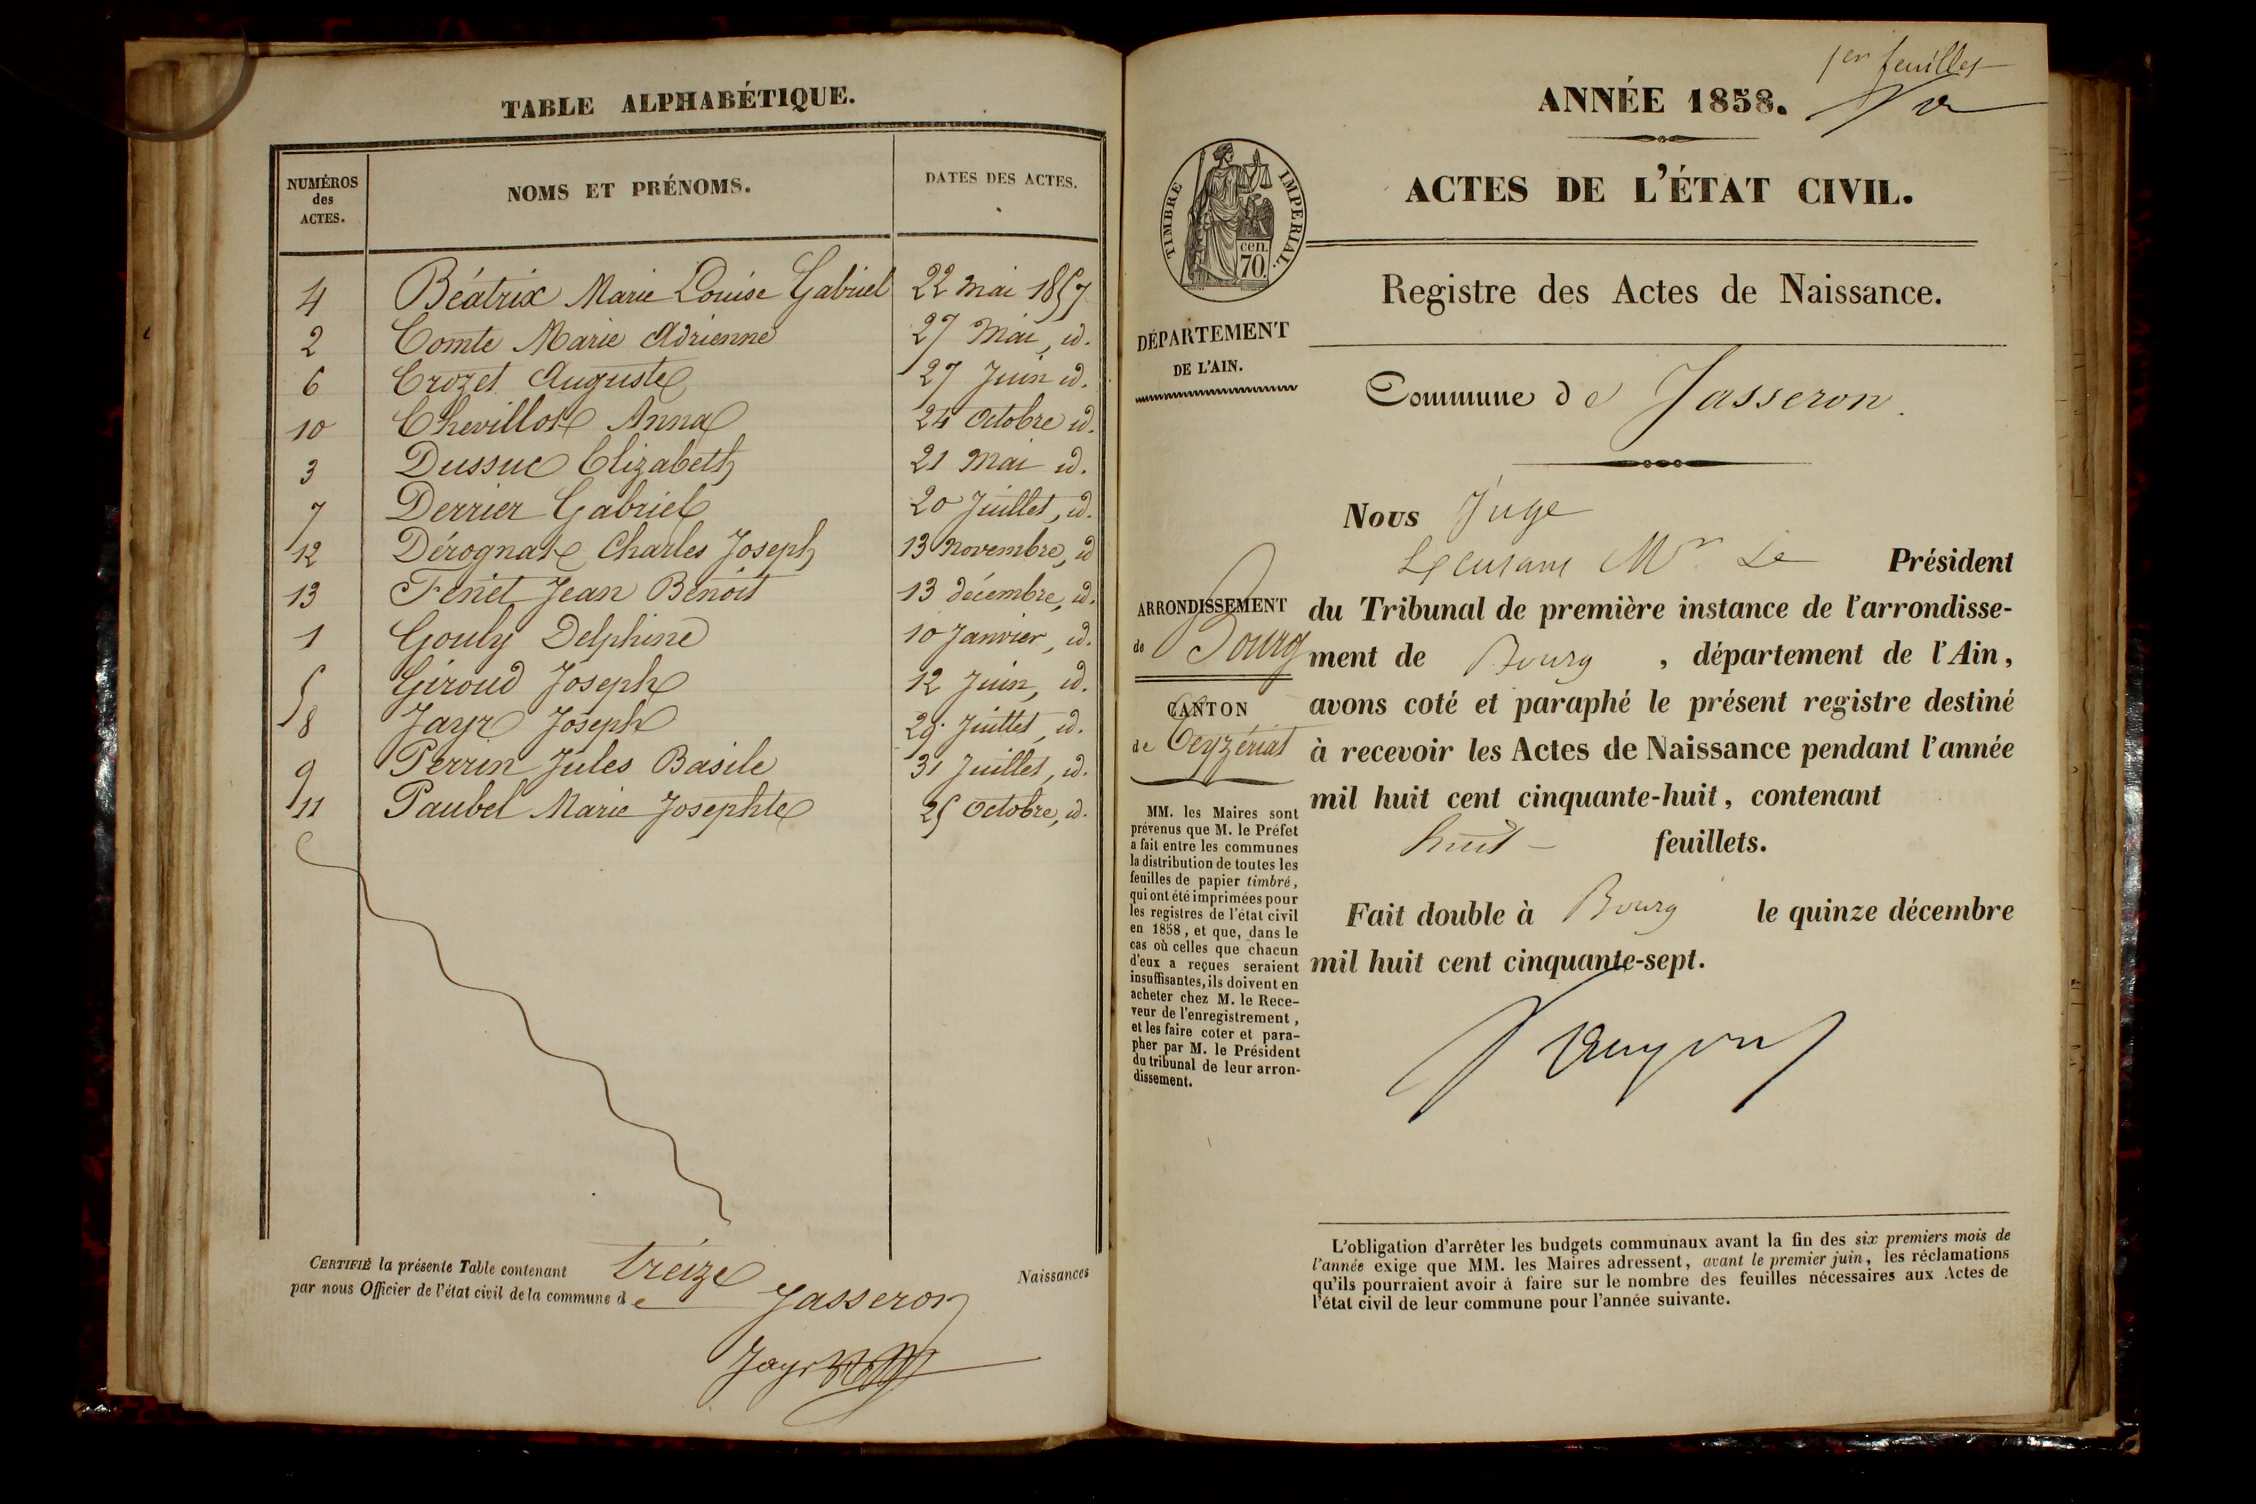 TABLE ALPHABÉTIQUE.
NUMÉROS des ACTES. NOMS ET PRÉNOMS. DATES DES ACTES.
4 Béatrix Marie Louise Gabriel 22 mai 1857
2 Comte Marie Adrienne 27 Mai, id.
6 Crozet Auguste 27 Juin id.
10 Chevillot Anna 24 octobre id.
3 Dussuc Elizabeth 21 Mai id.
7 Derrier Gabriel 20 Juillet, id.
12 Dérognat Charles Joseph 13 novembre, id
13 Fenet Jean Benoit 13 décembre, id.
1 Gouly Delphine 10 Janvier, id.
5 Giroud Joseph 12 Juin, id.
8 Jayr Joseph 29. Juillet, id.
9 Perrin Jules Basile 31 Juillet, id.
11 Paubel Marie Josephte 25 octobre, id.
CERTIFIÉ la présente Table contenant treize Naissances
par nous Officier de l'état civil de la commune de Jasseron
Jayr
1er feuillet
ANNÉE 1858.
ACTES DE L'ÉTAT CIVIL.
TIMBRE IMPERIAL.
cen.
70.
Registre des Actes de Naissance.
DÉPARTEMENT
DE L'AIN.
Commune de Jasseron.
Nous Juge
Mr Le Président
ARRONDISSEMENT
de Bourg
CANTON
de Ceyzériat
du Tribunal de première instance de l'arrondisse-
ment de Bourg, département de l'Ain,
avons coté et paraphé le présent registre destiné
à recevoir les Actes de Naissance pendant l'année
mil huit cent cinquante-huit, contenant
huit feuillets.
Fait double à Bourg le quinze décembre
mil huit cent cinquante-sept.
MM. les Maires sont
prévenus que M. le Préfet
a fait entre les communes
la distribution de toutes les
feuilles de papier timbré,
qui ont été imprimées pour
les registres de l'état civil
en 1858, et que, dans le
cas où celles que chacun
d'eux a reçues seraient
insuffisantes, ils doivent en
acheter chez M. le Rece-
veur de l'enregistrement,
et les faire coter et para-
pher par M. le Président
du tribunal de leur arron-
dissement.
L'obligation d'arrêter les budgets communaux avant la fin des six premiers mois de
l'année exige que MM. les Maires adressent, avant le premier juin, les réclamations
qu'ils pourraient avoir à faire sur le nombre des feuilles nécessaires aux Actes de
l'état civil de leur commune pour l'année suivante.